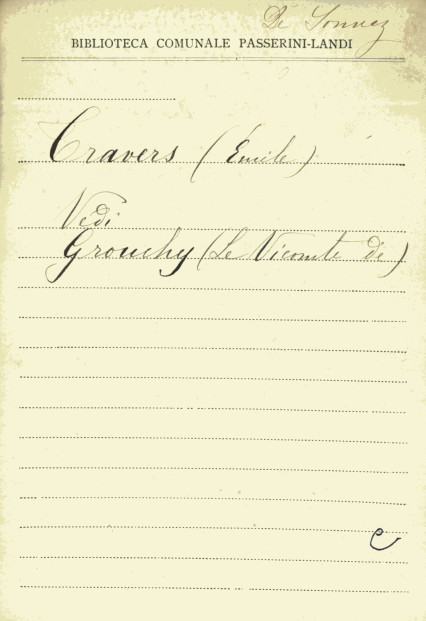 De
BIBLIOTECA COMUNALE PASSERINI-LANDI
Travers (Émile)
Vedi
Grouchy (Le Vicomte de)